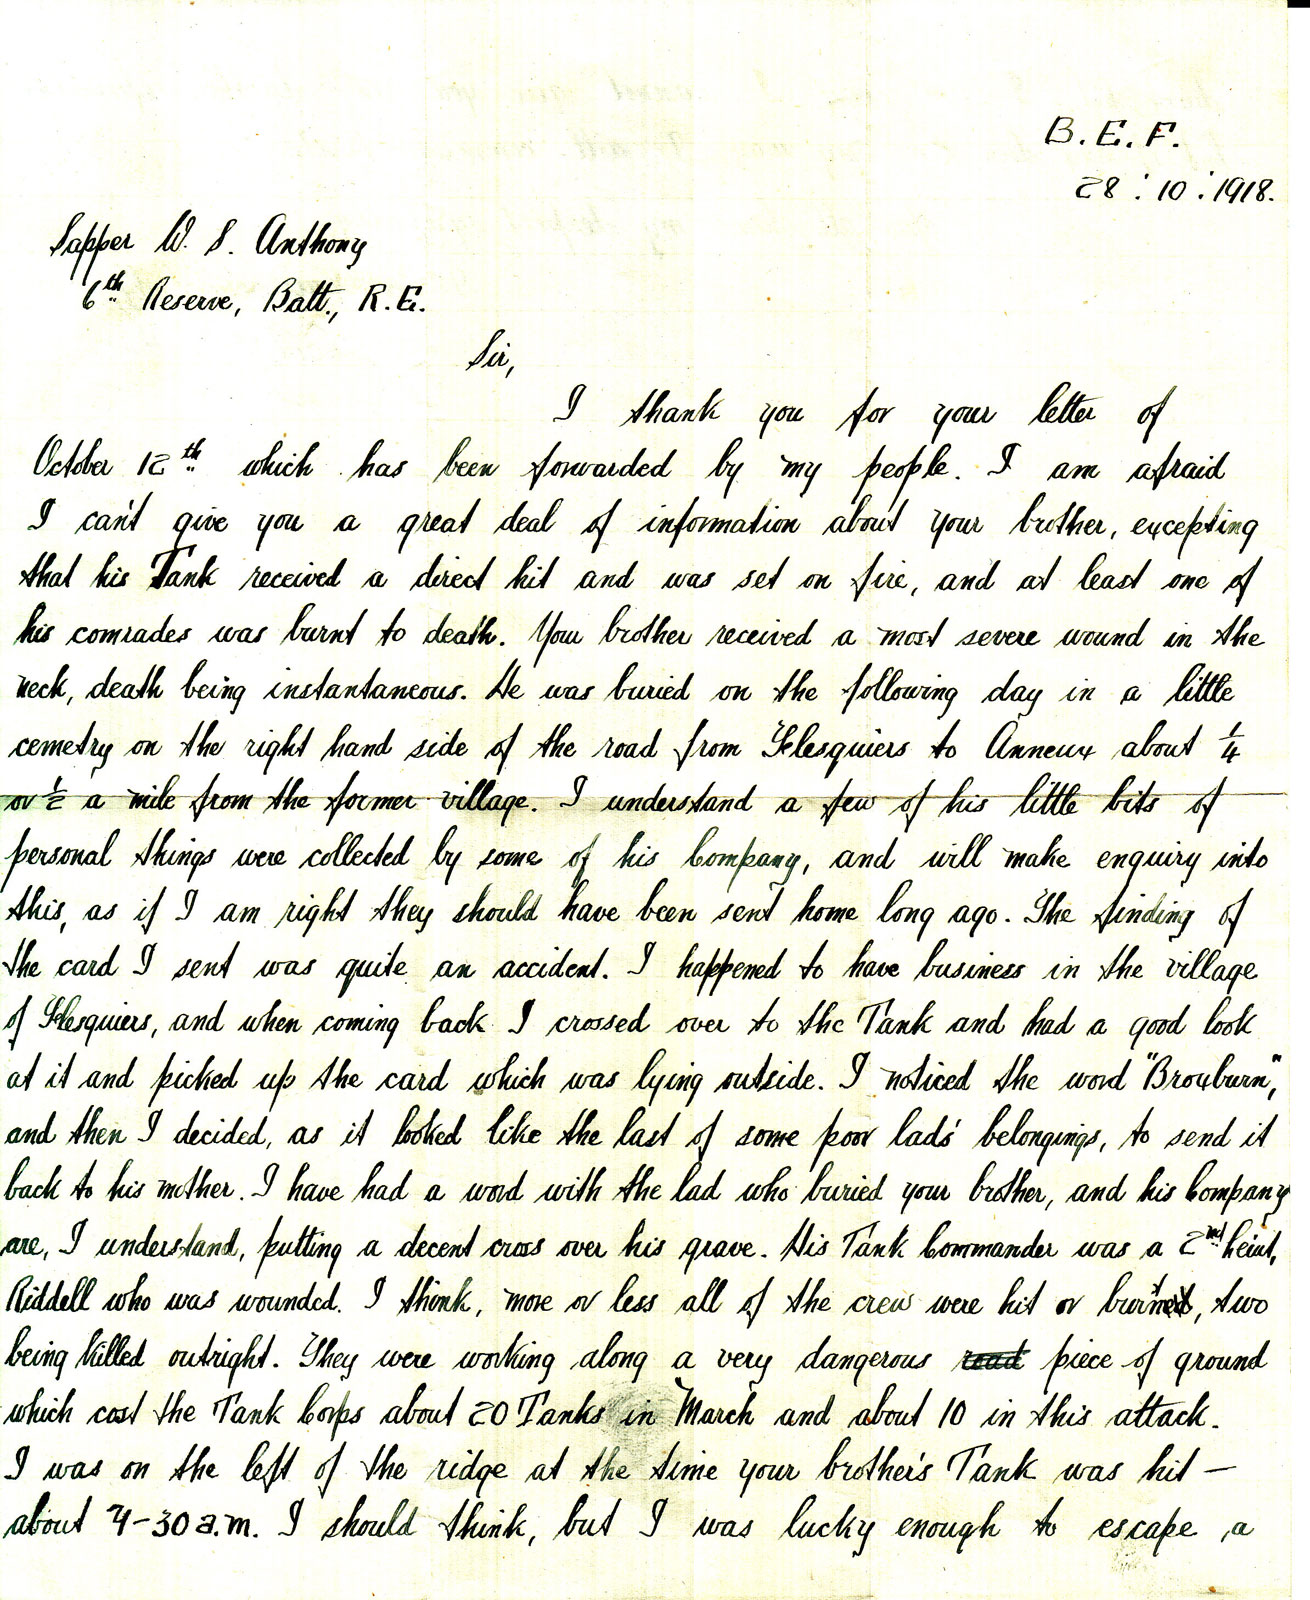 B.E.F.
28:10:1918.
Sapper W. S. Anthony
6th Reserve, Batt., R.E.
Sir,
I thank you for your letter of
October 12th which has been forwarded by my people. I am afraid
I can't give you a great deal of information about your brother, excepting
that his Tank received a direct hit and was set on fire, and at least one of
his comrades was burnt to death. Your brother received a most severe wound in the
neck, death being instantaneous. He was buried on the following day in a little
cemetry on the right hand side of the road from Flesquiers to Anneux about 1/4
or 1/2 a mile from the former village. I understand a few of his little bits of
personal things were collected by some of his Company, and will make enquiry into
this, as if I am right they should have been sent home long ago. The finding of
the card I sent was quite an accident. I happened to have business in the village
of Flesquiers, and when coming back I crossed over to the Tank and had a good look
at it and picked up the card which was lying outside. I noticed the word "Broxburn",
and then I decided, as it looked like the last of some poor lads' belongings, to send it
back to his mother. I have had a word with the lad who buried your brother, and his Company
are, I understand, putting a decent cross over his grave. His Tank Commander was a 2nd Leiut,
Riddell who was wounded. I think, more or less all of the crew were hit or burnt, two
being killed outright. They were working along a very dangerous road piece of ground
which cost the Tank Corps about 20 Tanks in March and about 10 in this attack.
I was on the left of the ridge at the time your brother's Tank was hit —
about 7-30 a.m. I should think, but I was lucky enough to escape a